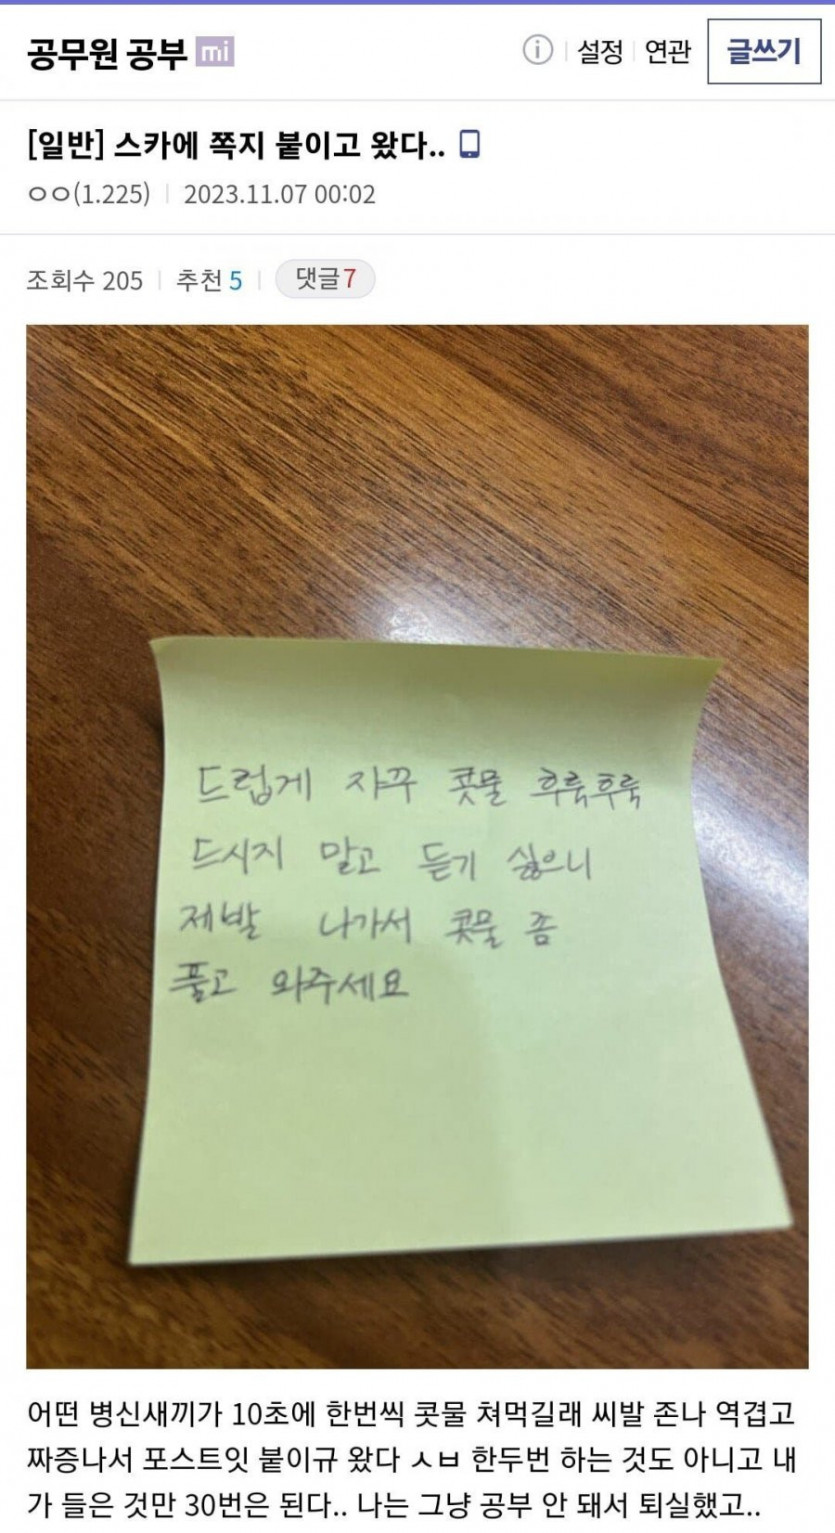 공무원 공부 mi
설정 연관 글쓰기
[일반] 스카에 쪽지 붙이고 왔다..
ㅇㅇ(1.225) 2023.11.07 00:02
조회수 205 추천 5 댓글 7
드럽게 자꾸 콧물 후룩후룩
드시지 말고 듣기 싫으니
제발 나가서 콧물 좀
풀고 와주세요
어떤 병신새끼가 10초에 한번씩 콧물 쳐먹길래 씨발 존나 역겹고
짜증나서 포스트잇 붙이규 왔다 ㅅㅂ 한두번 하는 것도 아니고 내
가 들은 것만 30번은 된다.. 나는 그냥 공부 안 돼서 퇴실했고..